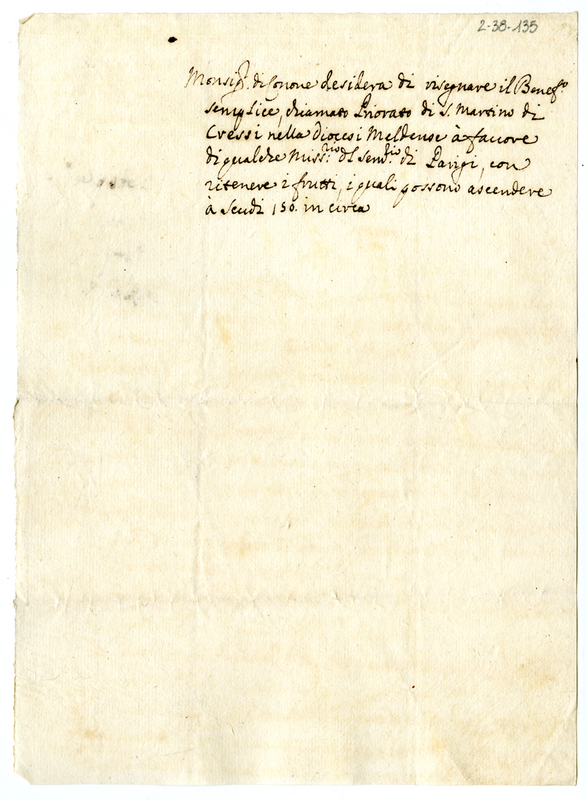 2-38-135
Monsig.r di Conone desidera di risegnare il Benef.o
semplice, chiamato Priorato di S. Martino di
Cressi nella Diocesi Meldense à favore
di qualche Miss.rio del Sem.rio di Parigi, con
ritenere i frutti, i quali possono ascendere
à Scudi 150. in circa